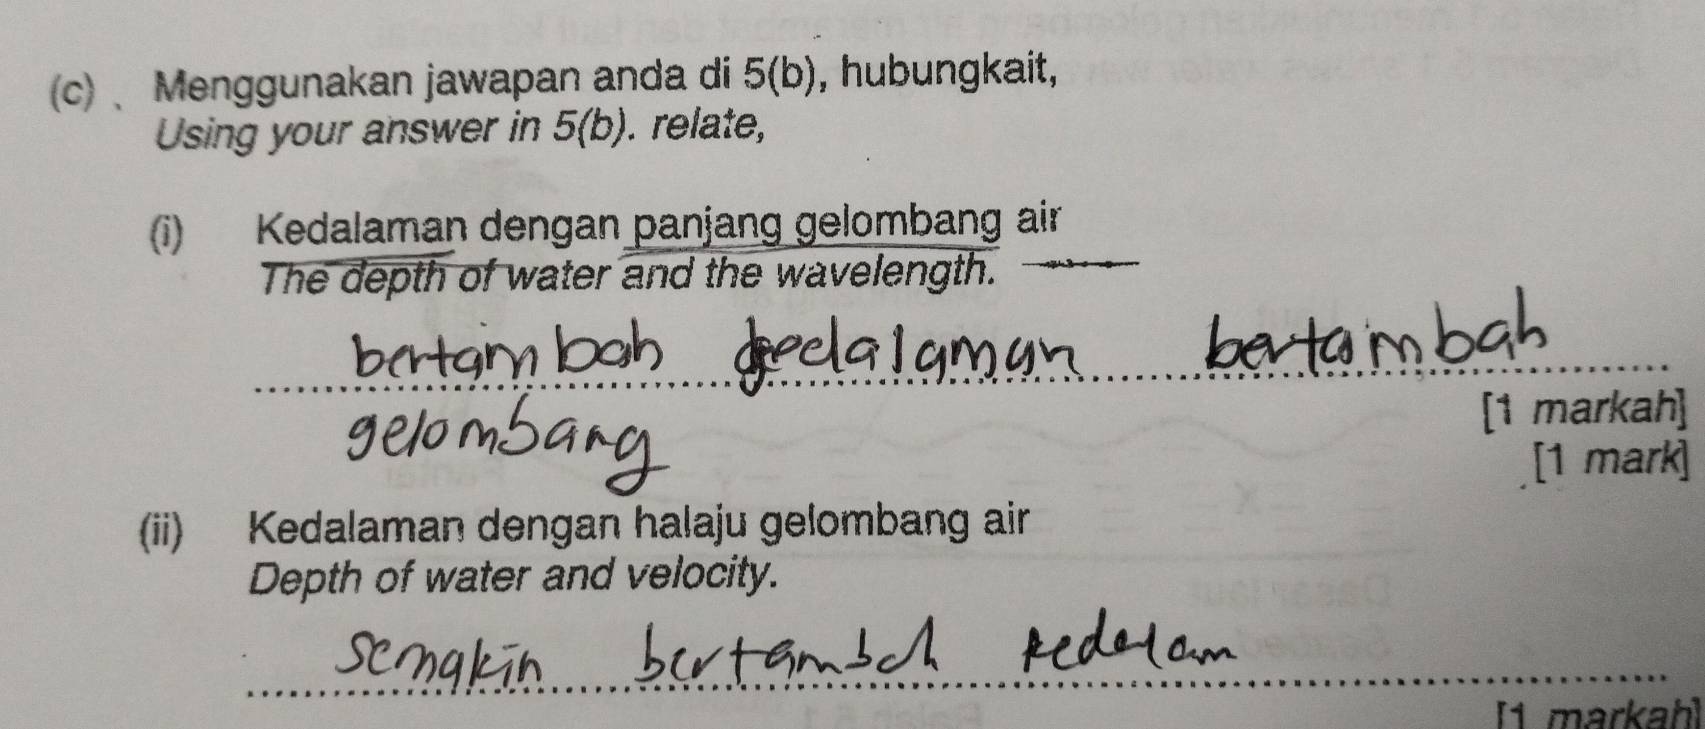 (c) Menggunakan jawapan anda di 5(b), hubungkait,
Using your answer in 5(b). relate,
(i) Kedalaman dengan panjang gelombang air
The depth of water and the wavelength.
bertambah kedalaman bertambah
[1 markah]
gelombang
[1 mark]
(ii) Kedalaman dengan halaju gelombang air
Depth of water and velocity.
semakin bertambah kedalam
[1 markah]